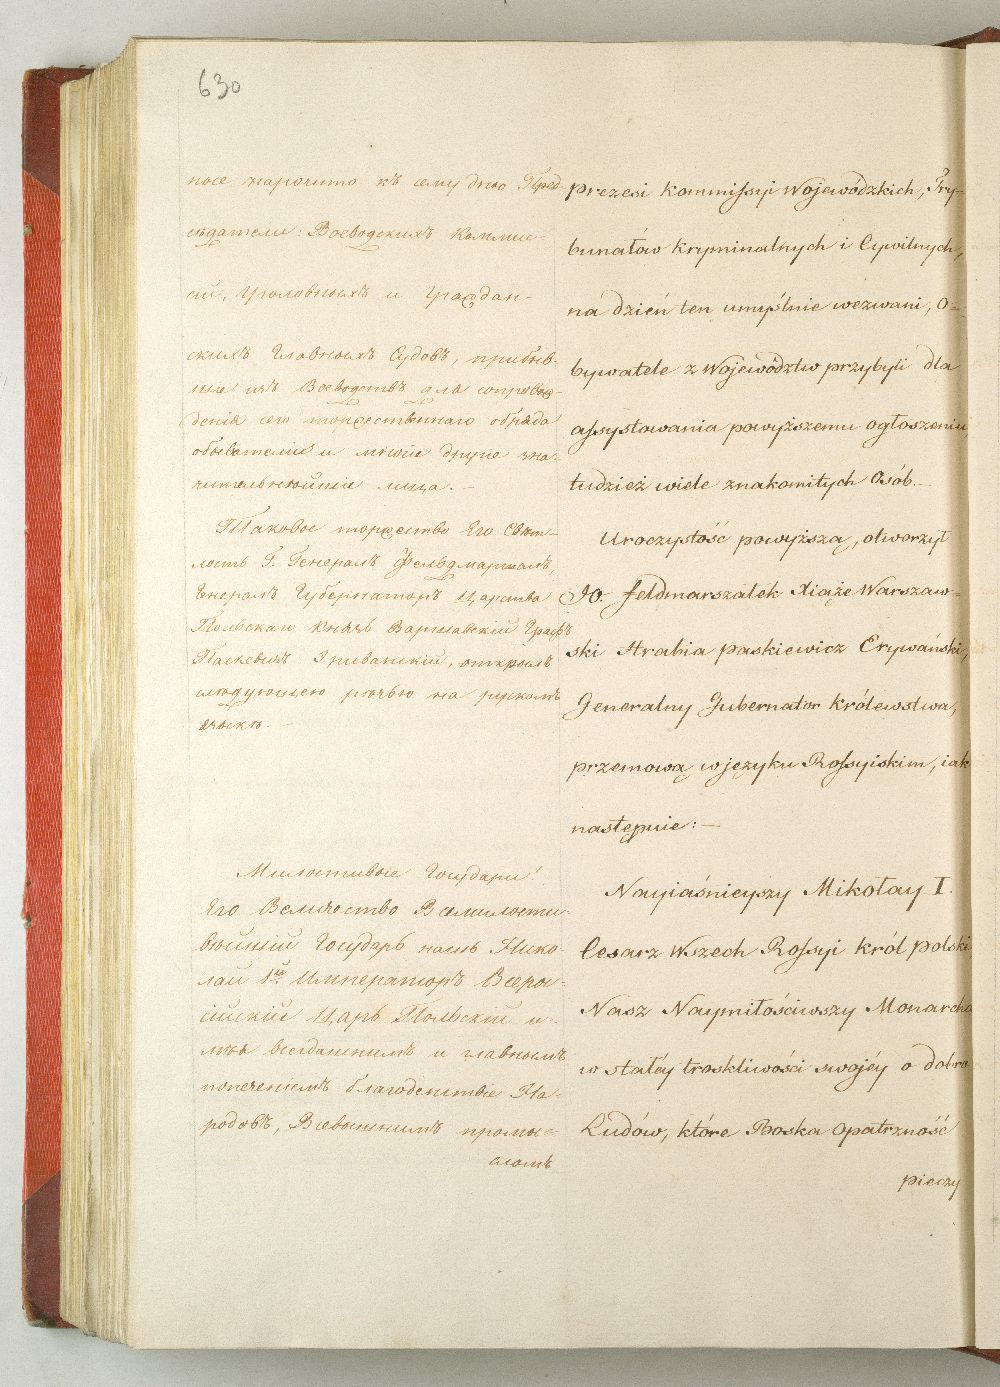 630
ные нарочито къ сему дню Пред-
сѣдатели: Воеводскихъ Коммис-
сій, Уголовныхъ и Граждан-
скихъ Главныхъ Судовъ, прибыв-
шіе изъ Воеводствъ для сопровож-
денія сего торжественнаго обряда
обыватели и многіе другіе зна-
чительнѣйшіе лица. —
Таковое торжество Его Свѣт-
лость Г. Генералъ Фельдмаршалъ,
Генералъ Губернаторъ Царства
Польскаго Князь Варшавскій Графъ
Паскевичъ Эриванскій, открылъ
слѣдующею рѣчью на русскомъ
языкѣ. —
Милостивые Государи!
Его Величество Всемилости-
вѣйшій Государь нашъ Нико-
лай 1й Императоръ Всерос-
сійскій Царь Польскій и-
мѣя всегдашнимъ и главнымъ
попеченіемъ благоденствіе На-
родовъ, Всевышнимъ промы-
сломъ
prezesi kommissyi Wojewódzkich, Try-
bunałów kryminalnych i Cywilnych,
na dzień ten umyślnie wezwani, O-
bywatele z Województw przybyli dla
assystowania powyższemu ogłoszeniu
tudzież wiele znakomitych Osób. —
Uroczystość powyższą, otworzył
JO. feldmarszałek Xiąże Warszaw-
ski Hrabia paskiewicz Erywański,
Generalny Gubernator królewstwa,
przemową w języku Rossyiskim, iak
następuie: —
Nayiaśnieyszy Mikołay I.
Cesarz Wszech Rossyi król polski
Nasz Naymiłościwszy Monarcha
w stałéy troskliwości swojéy o dobro
Ludów, które Boska Opatrzność
pieczy